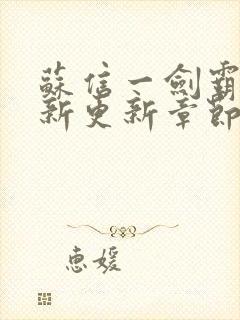 蘇信一劍霸
新更新章節
惠媛